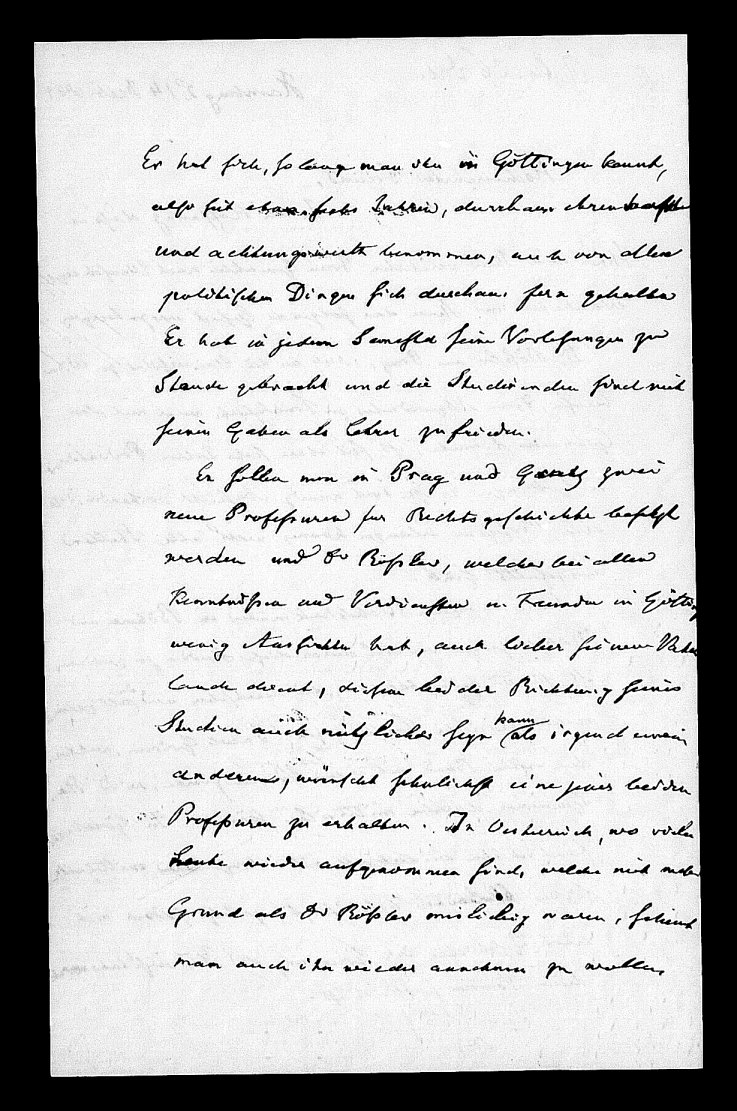 Er hat sich, so lange man ihn in Göttingen kennt,
also seit etwa sechs Jahren, durchaus ehrenhaft
und achtungswerth benommen, auch von allen
politischen Dingen sich durchaus fern gehalten
Er hat in jedem Semester seine Vorlesungen zu
Stande gebracht und die Studirenden sind mit
seinen Gaben als Lehrer zufrieden.
Es sollen nun in Prag und Gratz zwei
neue Professuren für Rechtsgeschichte besetzt
werden und Dr Rößler, welcher bei allen
Kenntnißen und Verdiensten u. Freunden in Götting
wenig Aussichten hat, auch lieber seinem Vater
lande dient, diesem bei der Richtung seines
Studien auch nützlicher seyn kann als irgend einem
anderen, wünscht sehnlichst eine jener beiden
Professuren zu erhalten. In Oesterreich, wo viele
heute wieder aufgenommen sind, welche mit mehr
Grund als Dr Rößler mislichig waren, scheint
man auch ihn wieder annehmen zu wollen,